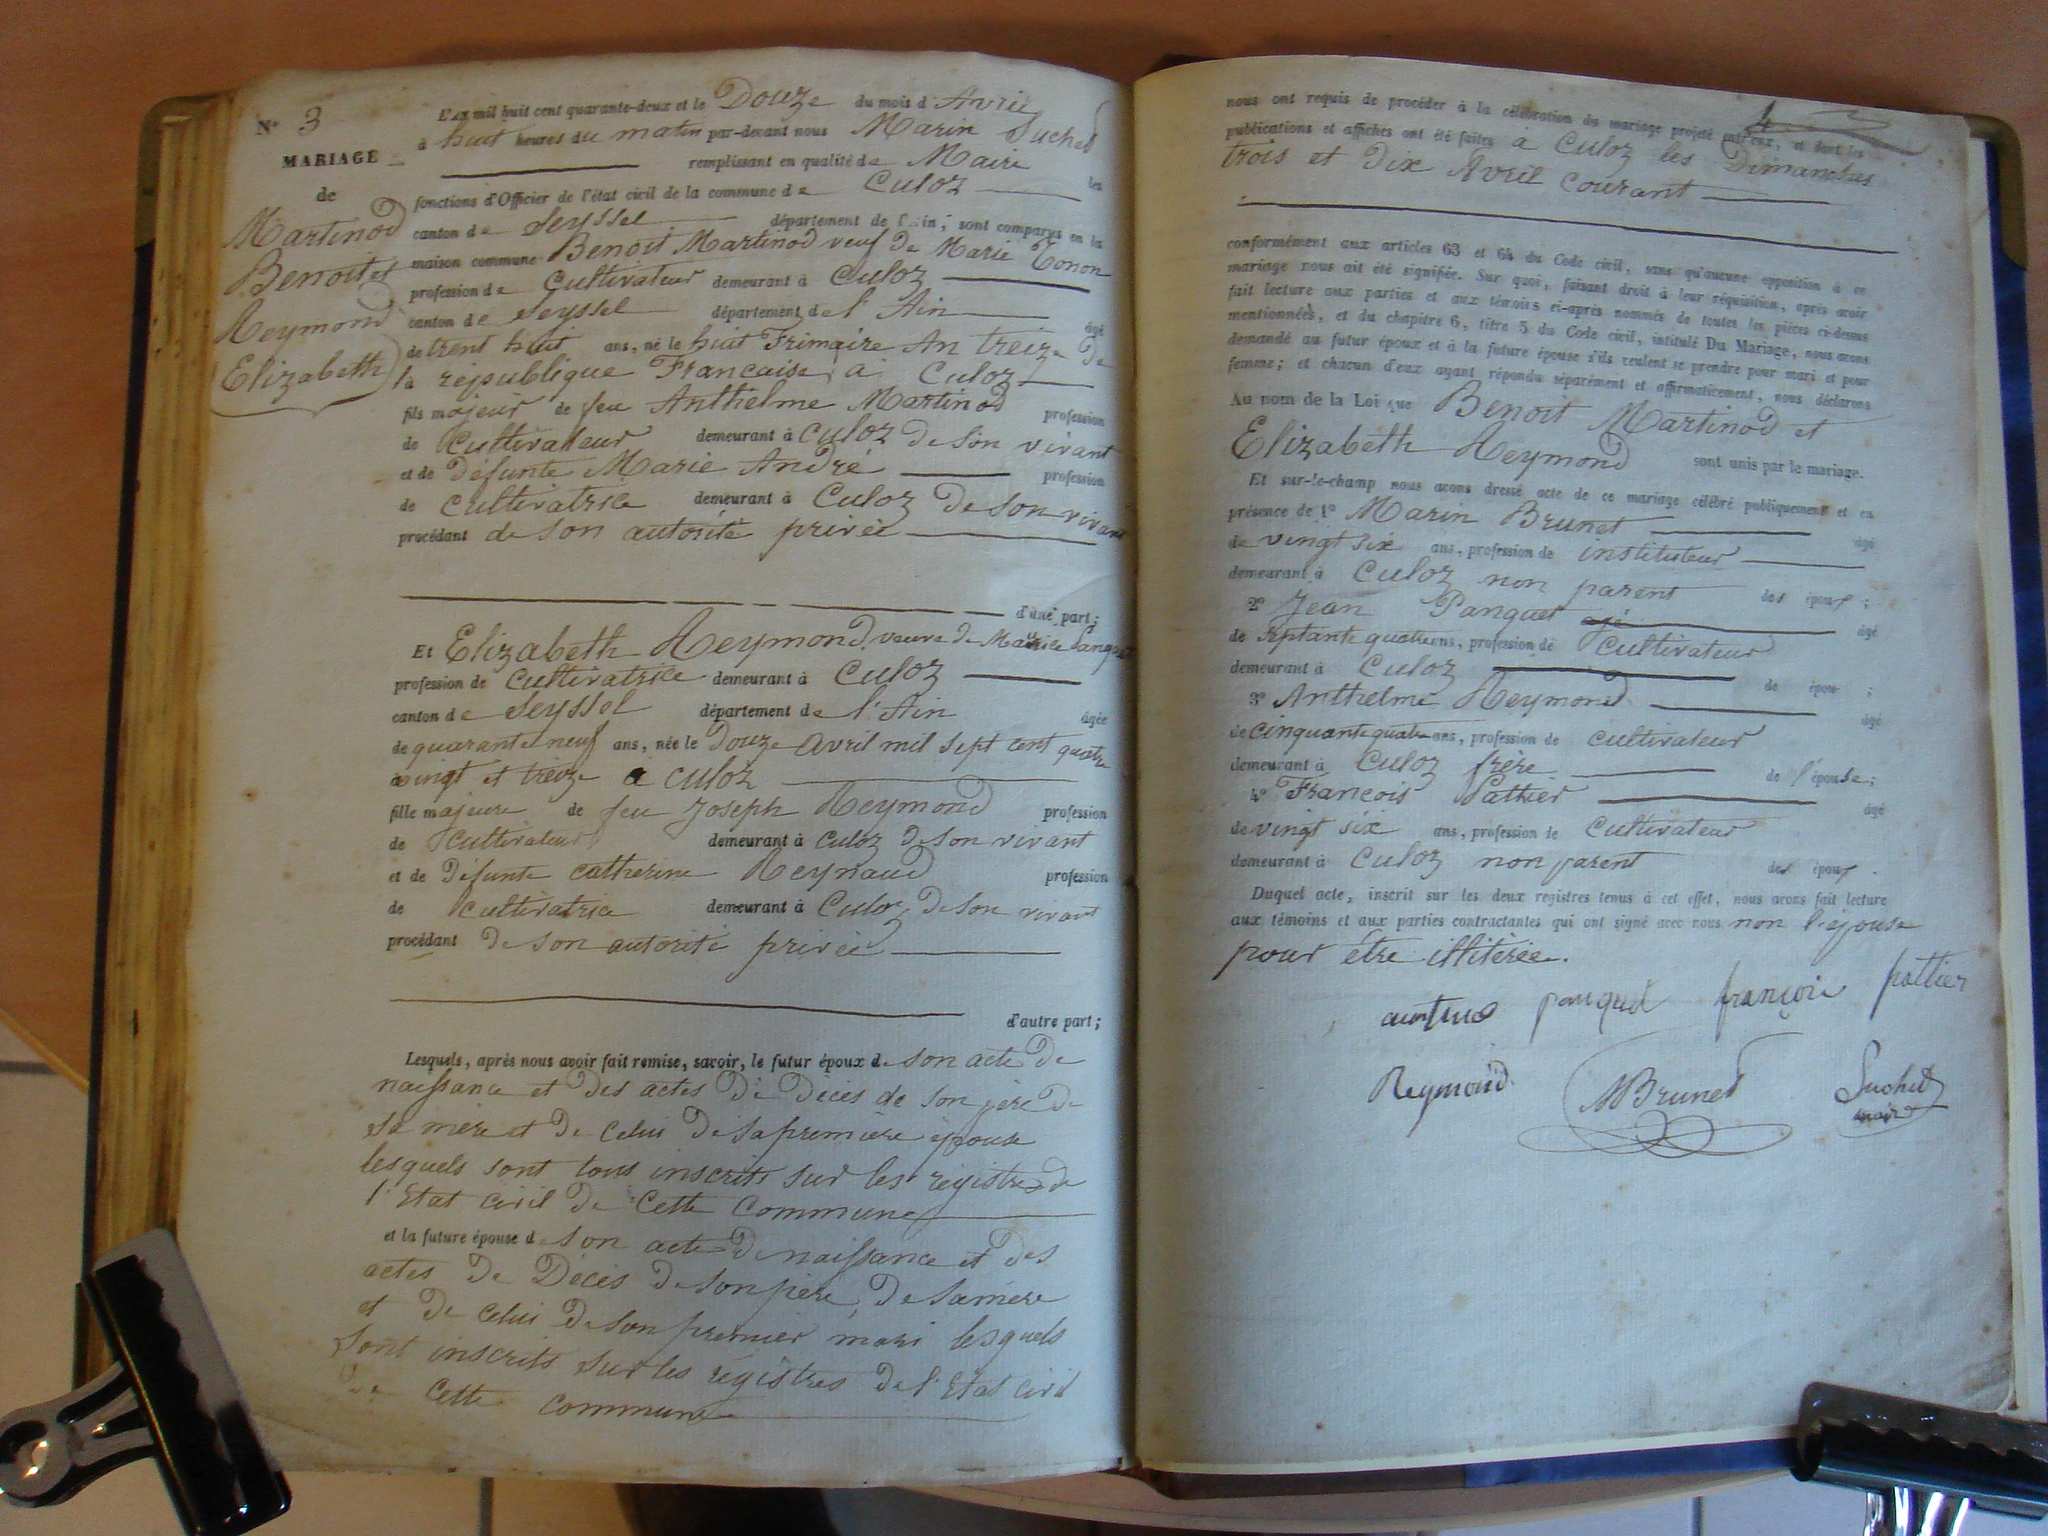 Nº 3
MARIAGE
de
Martinod
Benoit et
Reymond
Elizabeth
L'AN mil huit cent quarante-deux et le Douze du mois d'Avril
à huit heures du matin par-devant nous Marin Suchet
remplissant en qualité de Maire les
fonctions d'Officier de l'état civil de la commune de Culoz
canton de Seyssel département de l'Ain, sont comparus en la
maison commune Benoit Martinod veuf de Marie Tonon
profession de Cultivateur demeurant à Culoz
canton de Seyssel département de l'Ain âgé
de trent huit ans, né le huit Frimaire An treize de
la république Francaise à Culoz
fils majeur de feu Anthelme Martinod profession
de Cultivateur demeurant à Culoz de son vivant
et de défunte Marie André profession
de Cultivatrice demeurant à Culoz de son vivant
procédant de son autorité privée
d'une part;
Et Elizabeth Reymond veuve de Maurice Panguet
profession de Cultivatrice demeurant à Culoz
canton de Seyssel département de l'Ain âgée
de quarante neuf ans, née le Douze avril mil sept cent quatre
vingt et treize à Culoz
fille majeure de feu Joseph Reymond profession
de Cultivateur demeurant à Culoz de son vivant
et de Défunte Catherine Reynaud profession
de Cultivatrice demeurant à Culoz de son vivant
procédant de son autorité privée
d'autre part;
Lesquels, après nous avoir fait remise, savoir, le futur époux de son acte de
naissance et des actes de Décès de son père de
sa mère et de celui de sa première épouse
lesquels sont tous inscrits sur les registres de
l'Etat civil de cette commune
et la future épouse de son acte de naissance et des
actes de Décès de son père, de sa mère
et de celui de son premier mari lesquels
sont inscrits sur les régistres de l'Etat civil
de cette commune
nous ont requis de procéder à la célébration du mariage projeté entr'eux, et dont les
publications et affiches ont été faites à Culoz les Dimanches
trois et dix Avril courant
conformément aux articles 63 et 64 du Code civil, sans qu'aucune opposition à ce
mariage nous ait été signifiée. Sur quoi, faisant droit à leur réquisition, après avoir
fait lecture aux parties et aux témoins ci-après nommés de toutes les pièces ci-dessus
mentionnées, et du chapitre 6, titre 5 du Code civil, intitulé Du Mariage, nous avons
demandé au futur époux et à la future épouse s'ils veulent se prendre pour mari et pour
femme; et chacun d'eux ayant répondu séparément et affirmativement, nous déclarons
Au nom de la Loi que Benoit Martinod et
Elizabeth Reymond sont unis par le mariage.
Et sur-le-champ nous avons dressé acte de ce mariage célébré publiquement et en
présence de 1º Marin Brunet âgé
de vingt six ans, profession de instituteur
demeurant à Culoz non parent des époux;
2º Jean Panguet âgé
de septante quatre ans, profession de Cultivateur
demeurant à Culoz de épou ;
3º Anthelme Reymond âgé
de cinquante quatre ans, profession de cultivateur
demeurant à Culoz frère de l'épouse;
4º François Pattier âgé
de vingt six ans, profession de Cultivateur
demeurant à Culoz non parent des époux.
Duquel acte, inscrit sur les deux registres tenus à cet effet, nous avons fait lecture
aux témoins et aux parties contractantes qui ont signé avec nous non l'épouse
pour être illitérée.
panguet françois pattier
Reymond MBrunet Suchet
maire